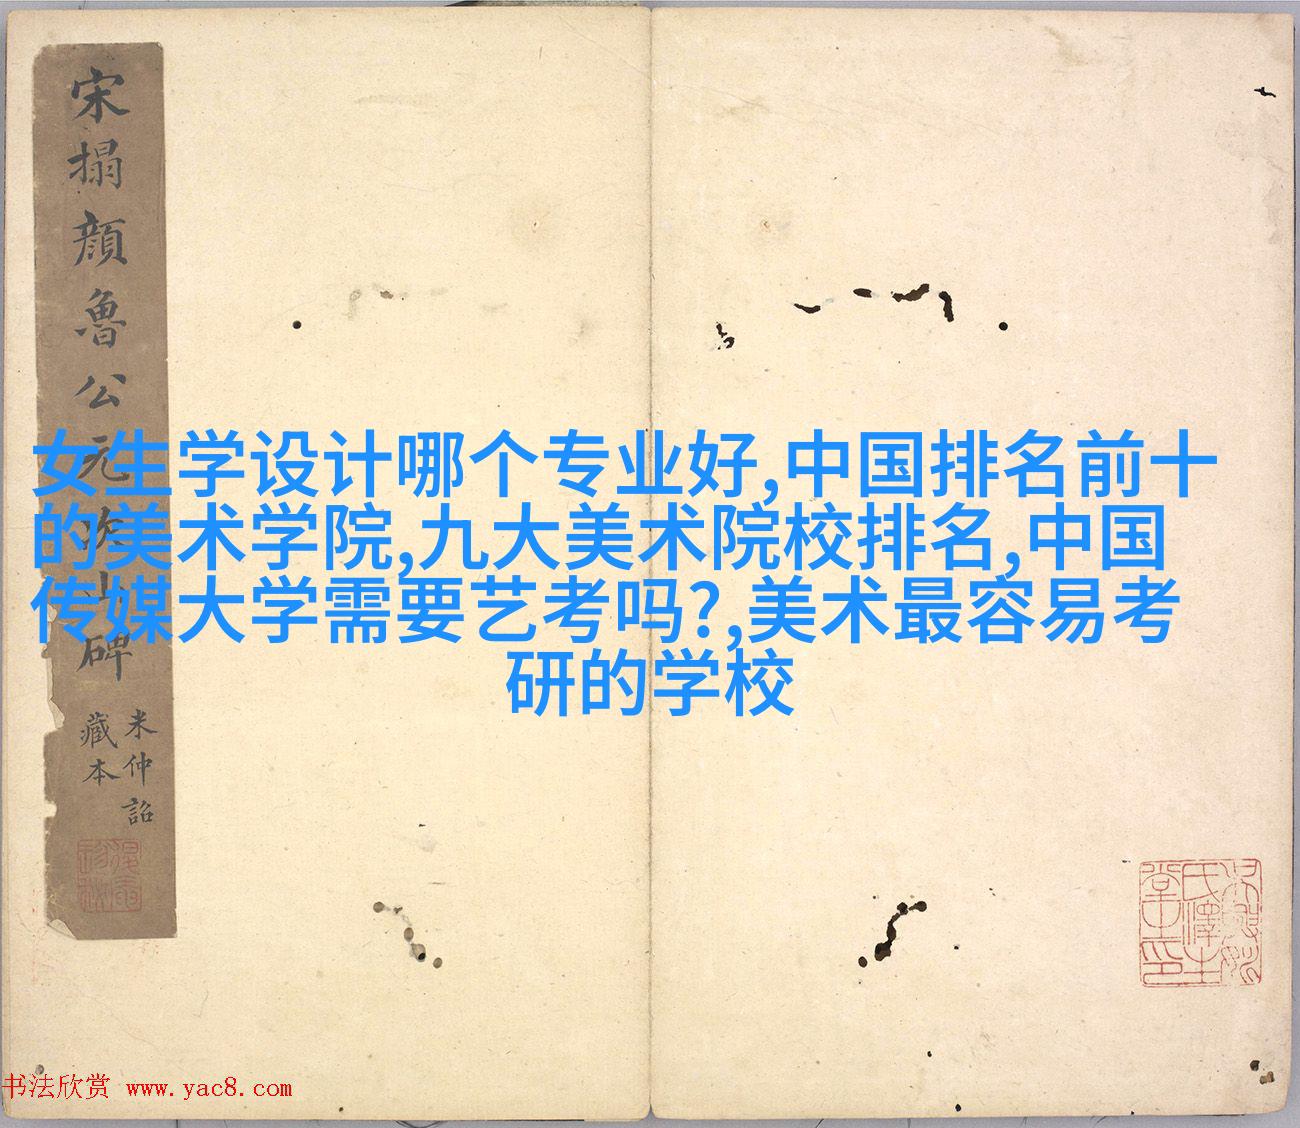 宋搨顔魯公元次山碑
米仲詔
藏本
女生学设计哪个专业好,中国排名前十
的美术学院,九大美术院校排名,中国
传媒大学需要艺考吗?,美术最容易考
研的学校
书法欣赏 www.yac8.com